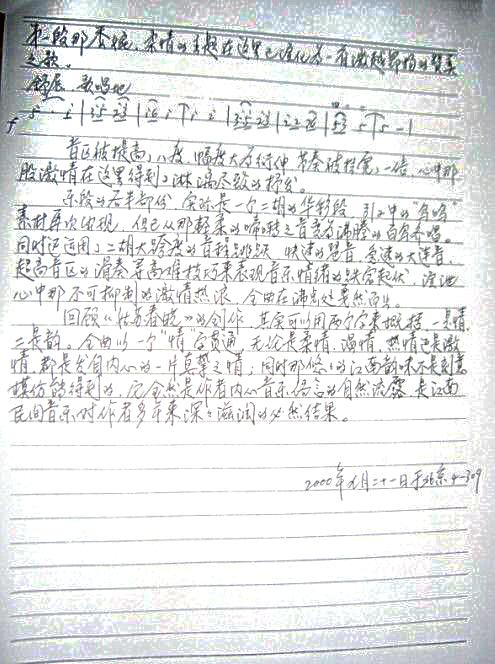 本段那委婉、柔情的主题在这里已演化为一首激越昂扬的赞美
之歌。
舒展 歌唱地
音区被提高八度，幅度大为衍伸，节奏被拉宽一倍，心中那
股激情在这里得到了淋漓尽致的抒发。
乐段的后半部份，实际是一个二胡的华彩段，引子中的"鸟鸣"
素材再次出现，但已从那轻柔的啼啭之音变为沸腾的百鸟齐唱。
同时还运用了二胡大跨度的音程跳跃、快速的琶音、急速的大连音、
超高音区的演奏等高难技巧来表现音乐情绪的跌宕起伏，渲泄
心中那不可抑制的激情热浪，全曲在沸点处戛然而止。
回顾《姑苏春晓》的创作，其实可以用两个字来概括：一是情，
二是韵。全曲以一个"情"字贯通，无论是柔情、温情、热情还是激
情，都是发自内心的一片真挚之情；同时那悠悠的江南韵味不是刻意
模仿能得到的，完全然是作者内心音乐语言的自然流露，是江南
民间音乐对作者多年来深深滋润的必然结果。
2000年 月二十一日于北京4-309